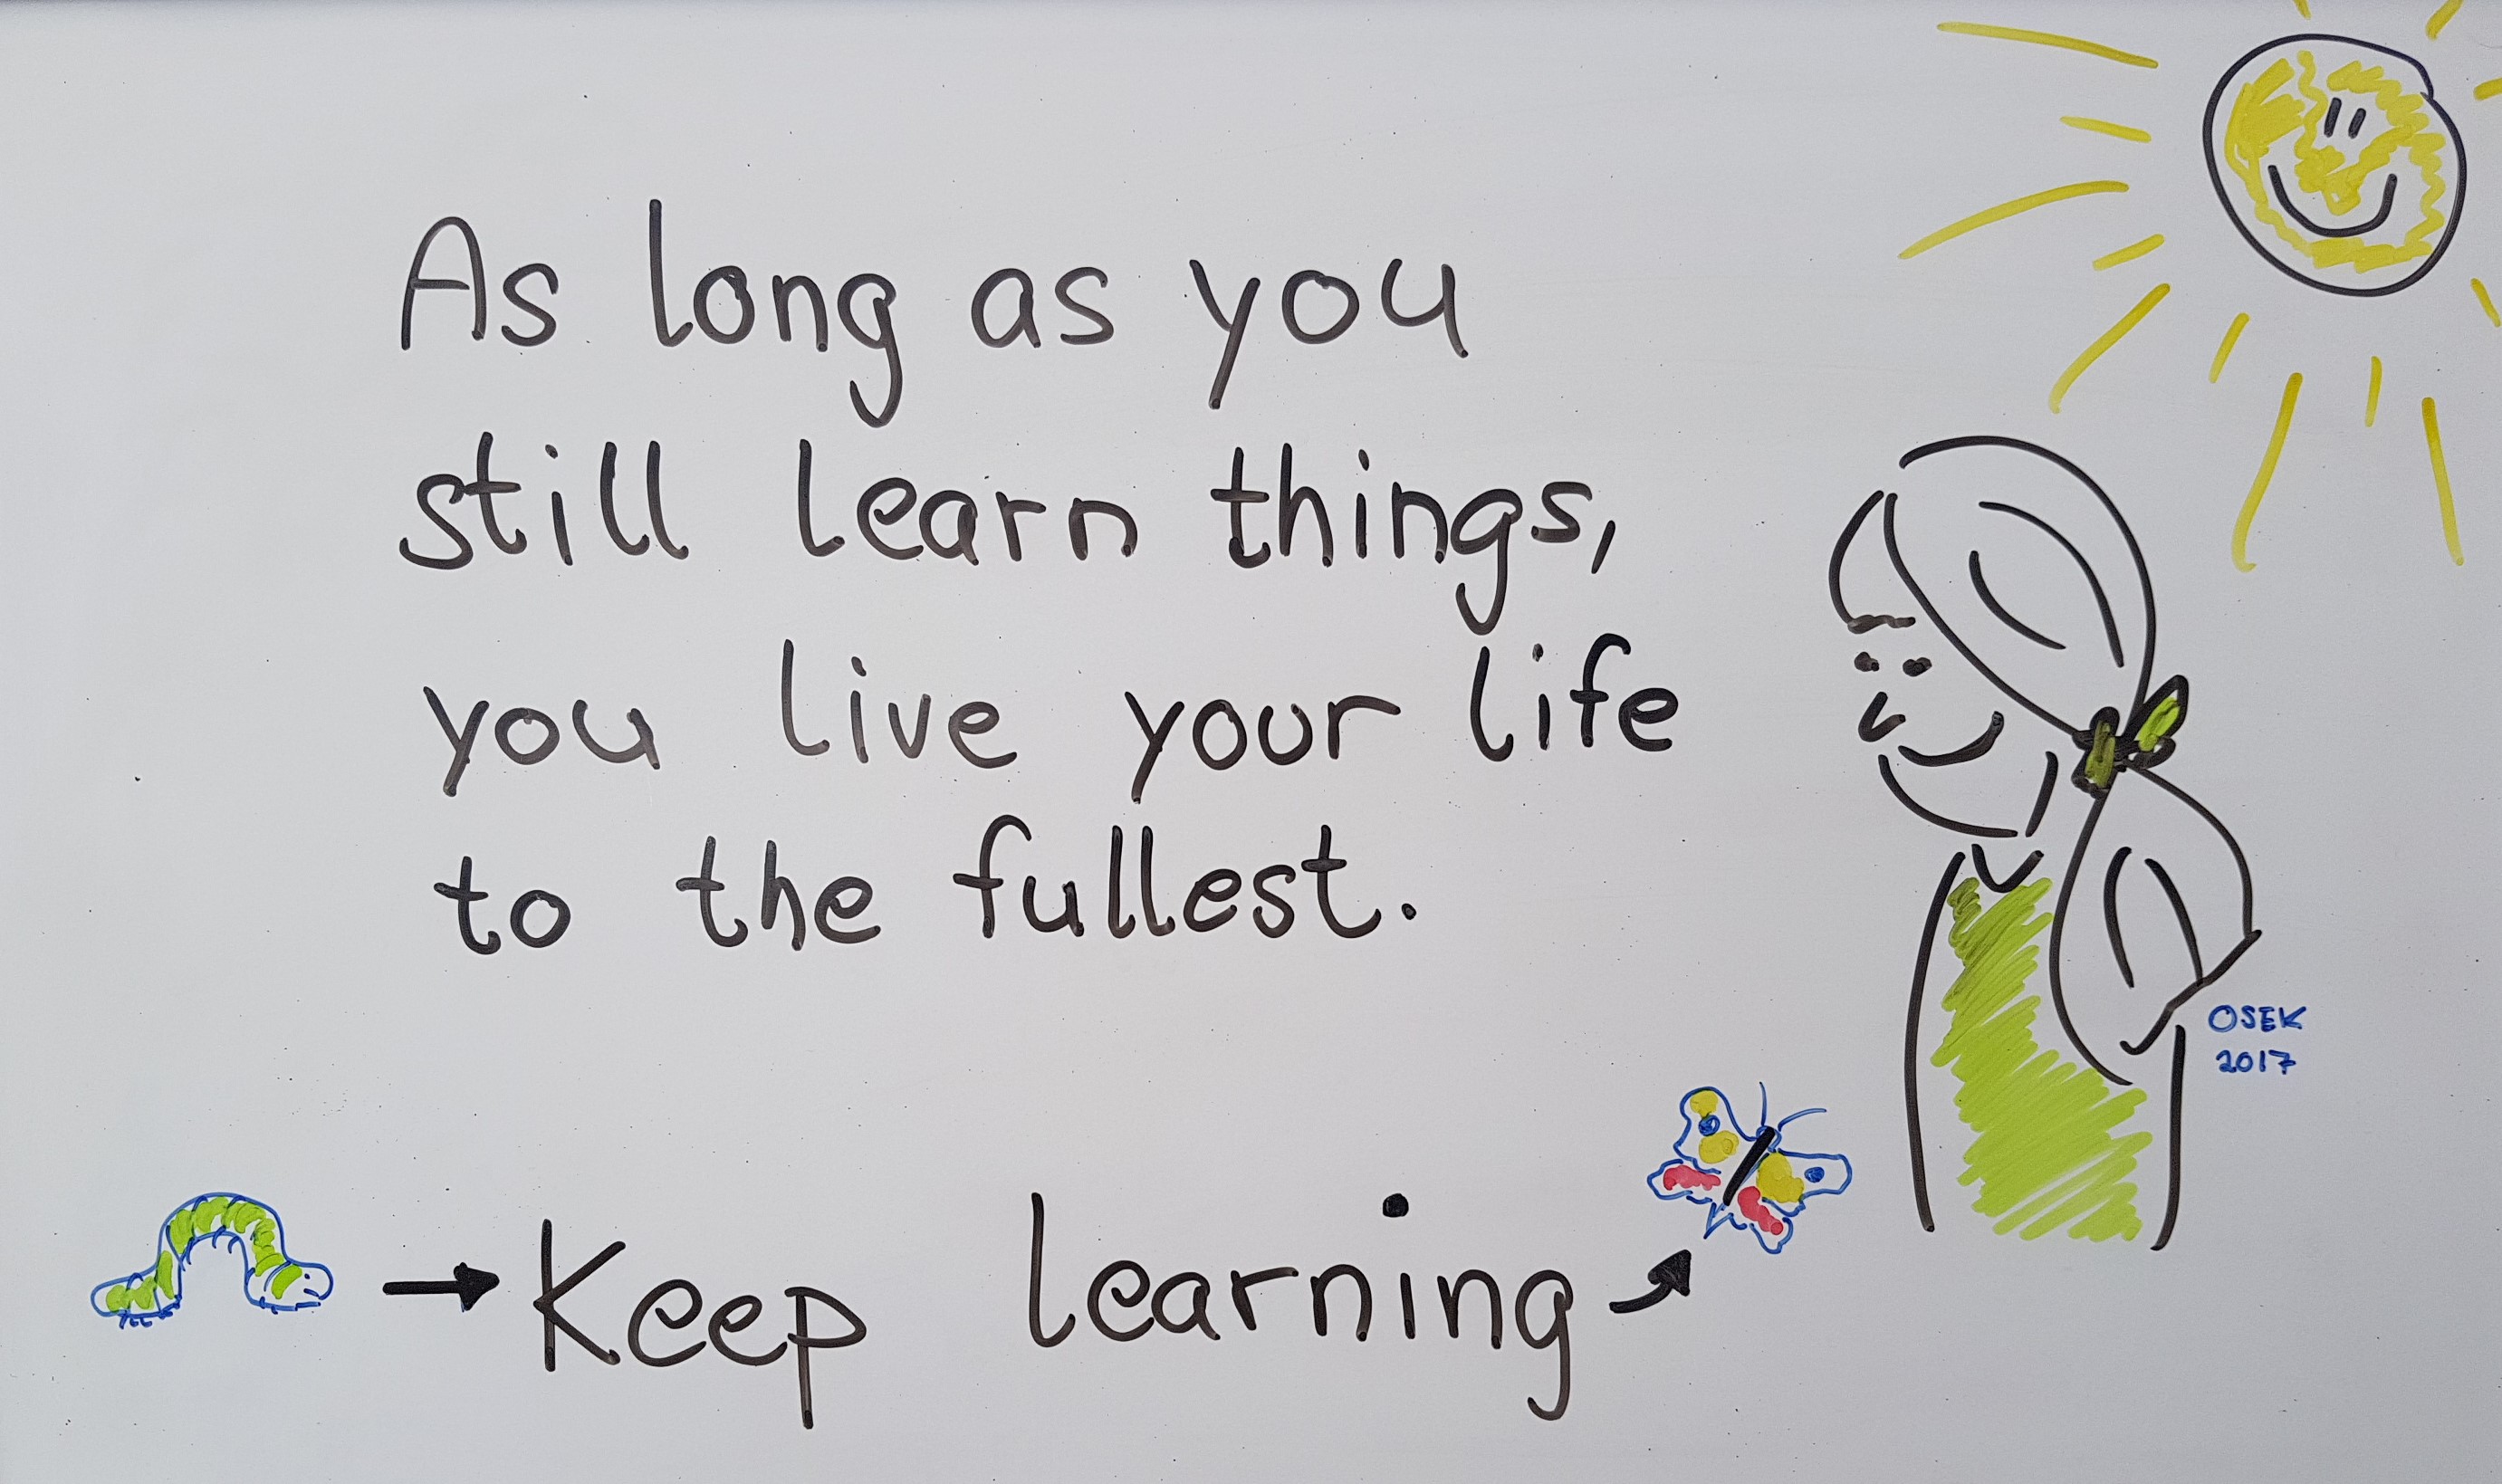 As long as you
still learn things,
you live your life
to the fullest.
OSEK
2017
Keep learning